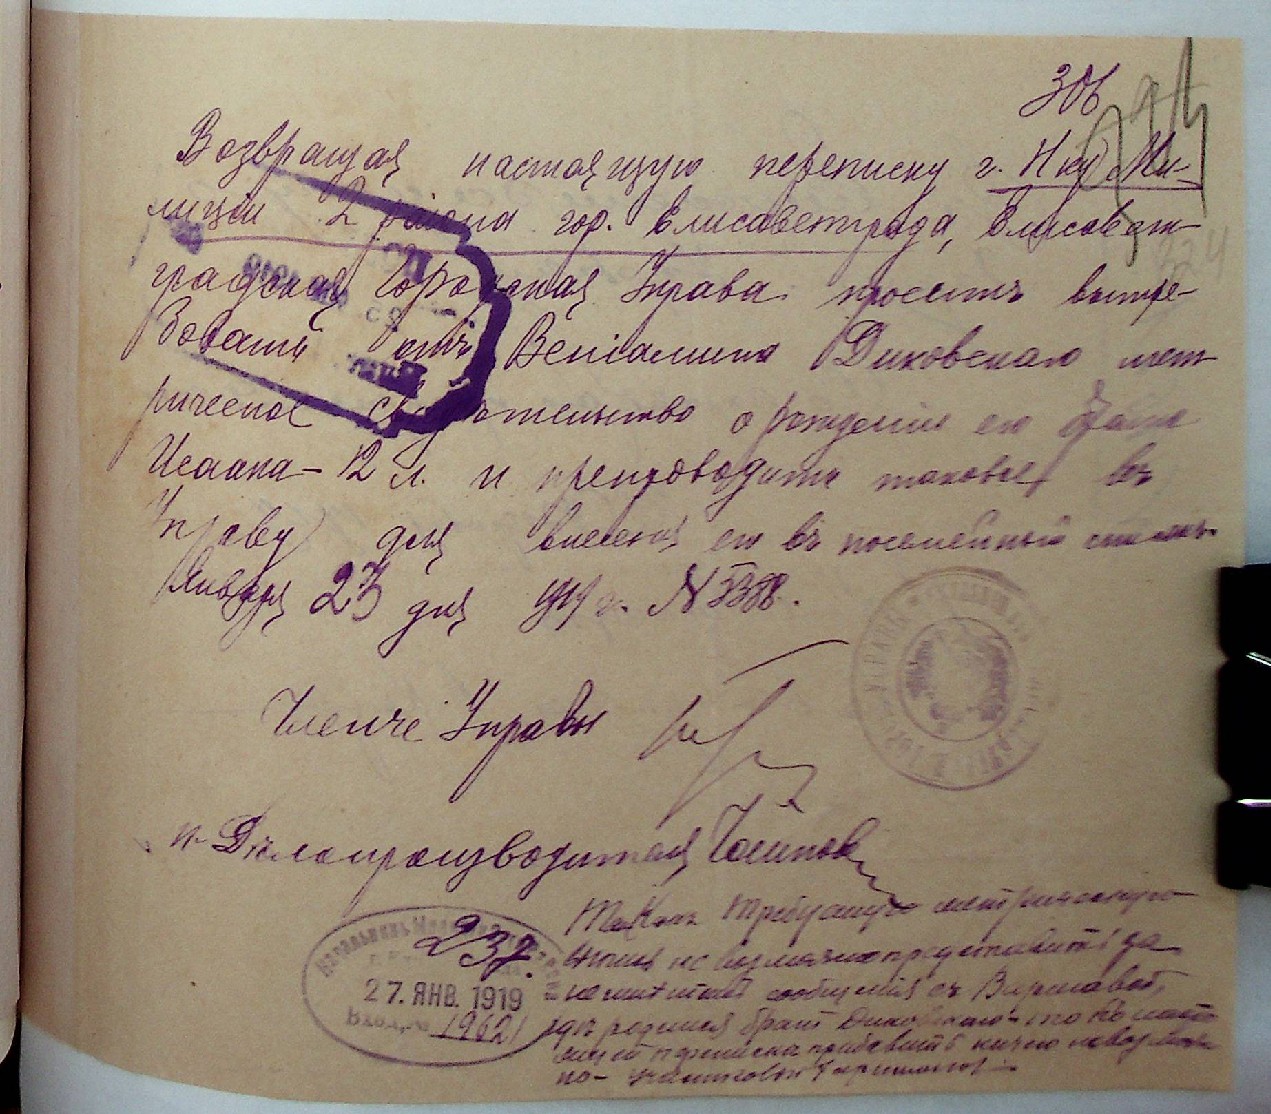 306
224
Возвращая настоящую переписку г. Нку Ми-
лиціи 2 района гор. Елисаветграда, Елисавет-
градская Городская Управа просить вытре-
бовать отъ Веніамина Диковскаго мет-
рическое свидетельство о рожденіи его брата
Исаака - 12 л. и препроводить таковое въ
Управу для внесенія его въ посемейный списокъ.
Января 23 дня 1919 г. №
Членъ Управы
и. Дѣлопроизводителя
Такъ требуемую метрическую
выпись не возможно представить за
неимѣніем сообщенія съ Варшавой,
гдѣ родился братъ Диковскаго - то къ насто-
ящей переписке прибавить ничего невозмож-
но -
Начальникъ
237.
27. ЯНВ. 1919
Вход. № 1962